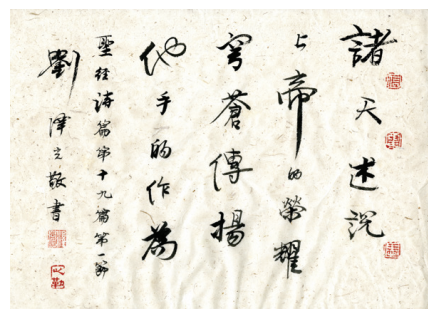 諸天述說
上帝的榮耀
穹蒼傳揚
他手的作為
聖經詩篇第十九篇第一節
劉澤光敬書